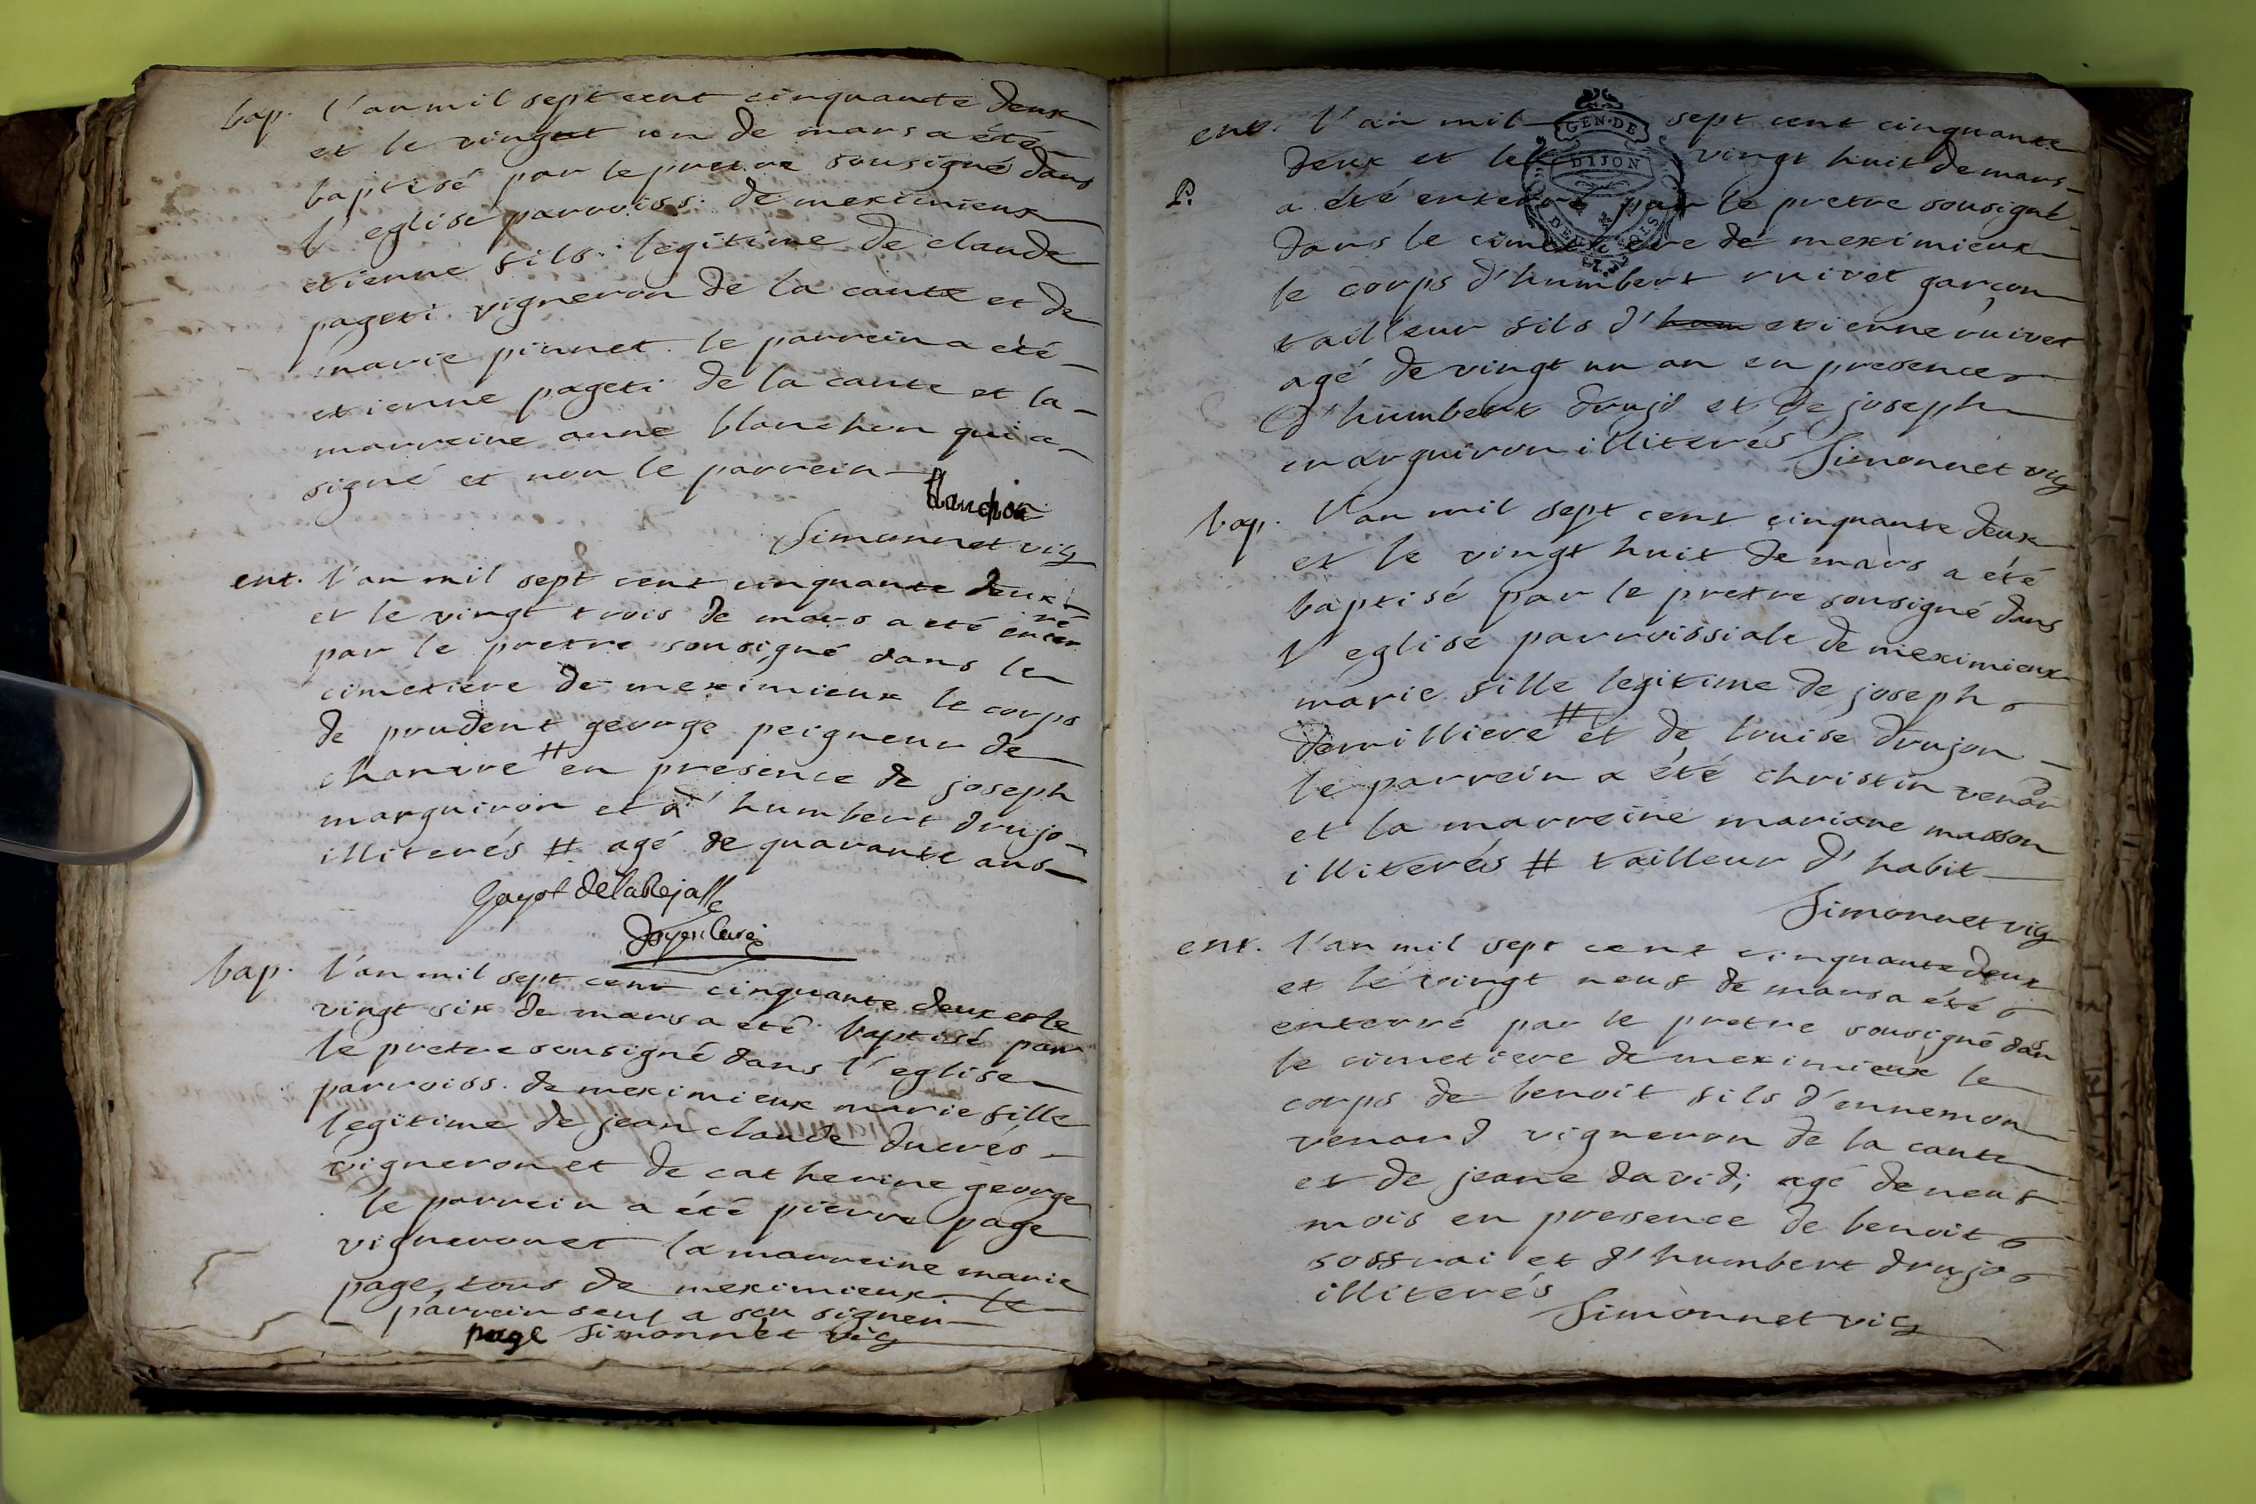 bap. l'an mil sept cent cinquante deux
et le vingt un de mars a été
baptisé par le pretre sousigné dans
l'eglise parroiss. de meximieux
etienne fils legitime de claude
pageti vigneron de la caute et de
marie pinnet. le parrein a été
etienne pageti de la caute et la
marreine anne blanchon qui a
signé et non le parrein
blanchon
Simonnet vic
ent. l'an mil sept cent cinquante deux
et le vingt trois de mars a eté enterré
par le pretre sousigné dans le
cimetiere de meximieux le corps
de prudent george peigneur de
chanvre # en presence de joseph
marguiron et d'humbert drujo
illiterés # agé de quarante ans
Gayot de la Rejasse
Doyen Curé
bap. l'an mil sept cent cinquante deux et le
vingt six de mars a été baptisé par
le pretre sousigné dans l'eglise
parroiss. de meximieux marie fille
legitime de jean claude ducrés
vigneron et de catherine george
le parrein a été pierre page
vigneron et la marreine marie
page, tous de meximieux le
parrein seul a seu signer
page Simonnet vic
ent. l'an mil sept cent cinquante
GEN. DE
DIJON
deux et le vingt huit de mars
P.
a été enterré par le pretre sousigné
dans le cimetiere de meximieux
le corps d'humbert ruivet garçon
tailleur fils d'hum etienne ruivet
agé de vingt un an en presence
d'humbert drujo et de joseph
marguiron illiterés Simonnet vic
bap. l'an mil sept cent cinquante deux
et le vingt huit de mars a été
baptisé par le pretre sousigné dans
l'eglise parroissiale de meximieux
marie fille legitime de joseph
derrilliere # et de louise drujon
le parrein a été christin venard
et la marreine mariane masson
illiterés # tailleur d'habit
Simonnet vic
ent. l'an mil sept cent cinquante deux
et le vingt neuf de mars a été
enterré par le pretre sousigné dans
le cimetiere de meximieux le
corps de benoit fils d'ennemon
venard vigneron de la caute
et de jeane david; agé de neuf
mois en presence de benoit
sossrai et d'humbert drujo
illiterés
Simonnet vic